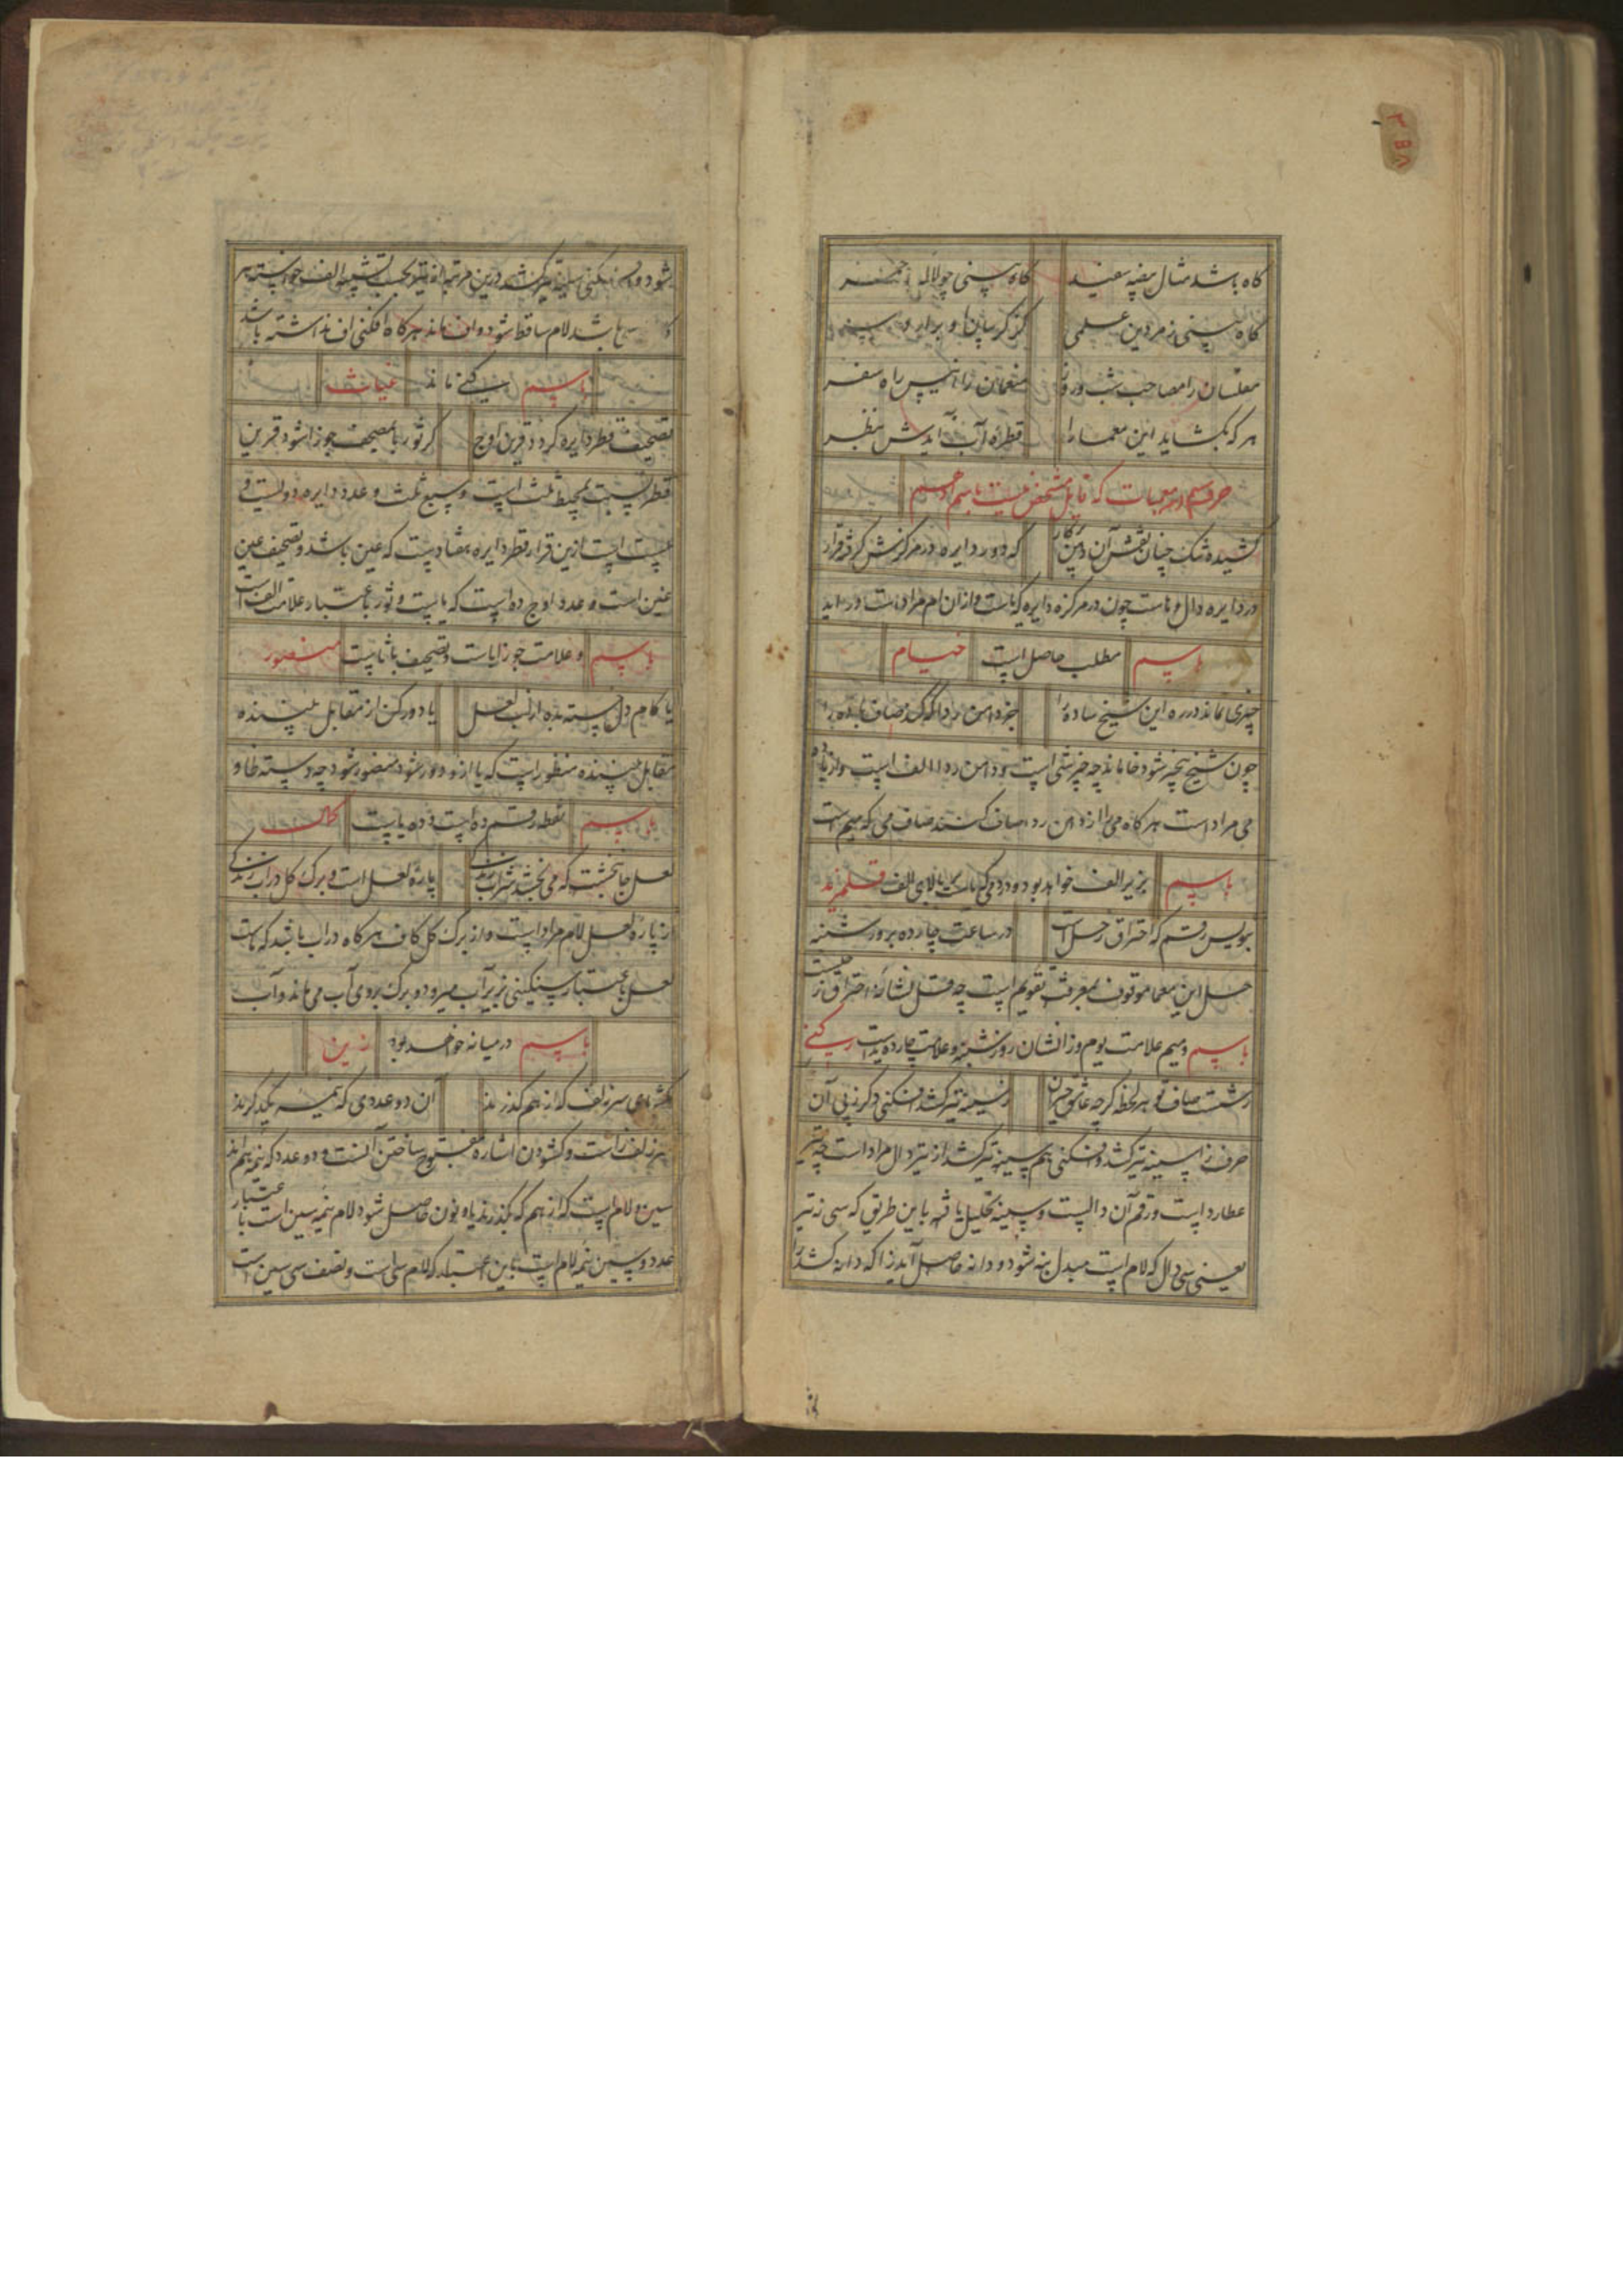 گاه باشد مثال بیضه سفید گاه بینی چو لاله
گاه بینی زمردین علمی کز کریبان او برارد سر
مفلسان را مصاحب شب و روز منعمان را انیس راه سفر
هر که بکشاید این معما را قطرهٔ آب آیدش بنظر
حرف سیم در معمیات که قابل مشخص نیست باسم ادهم
کشیده مشک چنان نقش آن دهن پرکار که دور دایره در مرکزش کرفته قرار
در دایره دال و هاست چون در مرکزه دایره که هاست و ازان ام مراد است در اید
باسم مطلب حاصل است خیام
چیزی نماند در ره این شیخ ساده را جز دامن ردا که کند صاف باده را
چون شیخ بیچیز شود خا ماند چه چیز شی است و دامن ردا الف است و از باده
می مراد است هر گاه می را از دامن ردا صاف کنند صاف می که میم است
باسم بزیر الف خواهد بود و درد می که یاست ببالای الف
بنویس رقم که احتراق زحل است در ساعت چارده بروز شنبه
حل این معما موقوف بمعرفت تقویم است چه قل نشانهٔ احتراق زحلست
باسم و میم علامت یوم و ز انشان روز شنبه و علامت چارده ید است
ز شست صاف تو هر لحظه کرچه عاشق حیران ز سینه تیر کشد افکنی دکر ز پی آن
حرف ز از سینه تیر کشد و افکنی هم سینه تیر کشد از تیر دال مراد است چه تیر
عطارد است و رقم آن دالست و سینه تحلیل یافته باین طریق که سی نه تیر
یعنی سی دال که لام است مبدل بنه شود و دانه حاصل آید زا که دانه کشد را
شود و افکنی سینه تیر کشد درین مرتبه از تیر بحسب تشبیه الف خواسته
باشد لام ساقط شود و اف ماند هر کاه افکنی اف نداشته باشد
باسم کنی ماند غیاث
تصحیف قطر دایره کردد قرین اوج کر ثور با مصحف جوزا شود قرین
قطر نسبت بمحیط ثلث است و سبع ثلث و عدد دایره دویست و
بیست است ازین قرار قطر دایره هفتاد است که عین باشد و تصحیف عین
غین است و عدد اوج ده است که یا است و ثور باعتبار علامت الف است
باسم و علامت جوزا باست و تصحیف با ثا است منصور
یا کام دل خسته بده از لب لعل یا دور کن از مقابل بیننده
مقابل بیننده منظور است که یا ازو دور شود منصور شود چه دسته ظا و
باسم نقطه رقم ده است و ده یا است
لعل جانبخشت که می بخشد شراب زندکی پارهٔ لعل است و برک کل در آب زندکی
از پارهٔ لعل لام مراد است و از برک کل کاف هر کاه در آب باشد که ماست
لعل باعتبار سنکینی زیر آب میرود و برک بروی آب می ماند و آب
باسم درمیانه خواهد بود زین
بکشادی سر زلف که از هم کذرند آن دو عددی که نیمهٔ یکدیکرند
سر زلف زاست و کشودن اشاره بمفتوح ساختن آنست و دو عدد که نیمهٔ هم اند
سین و لام است که از هم که بکذرند یا و نون حاصل شود لام نیمهٔ سین است باعتبار
عدد و سین نیمهٔ لام است باین اعتبار که لام سی است و نصف سی سین است